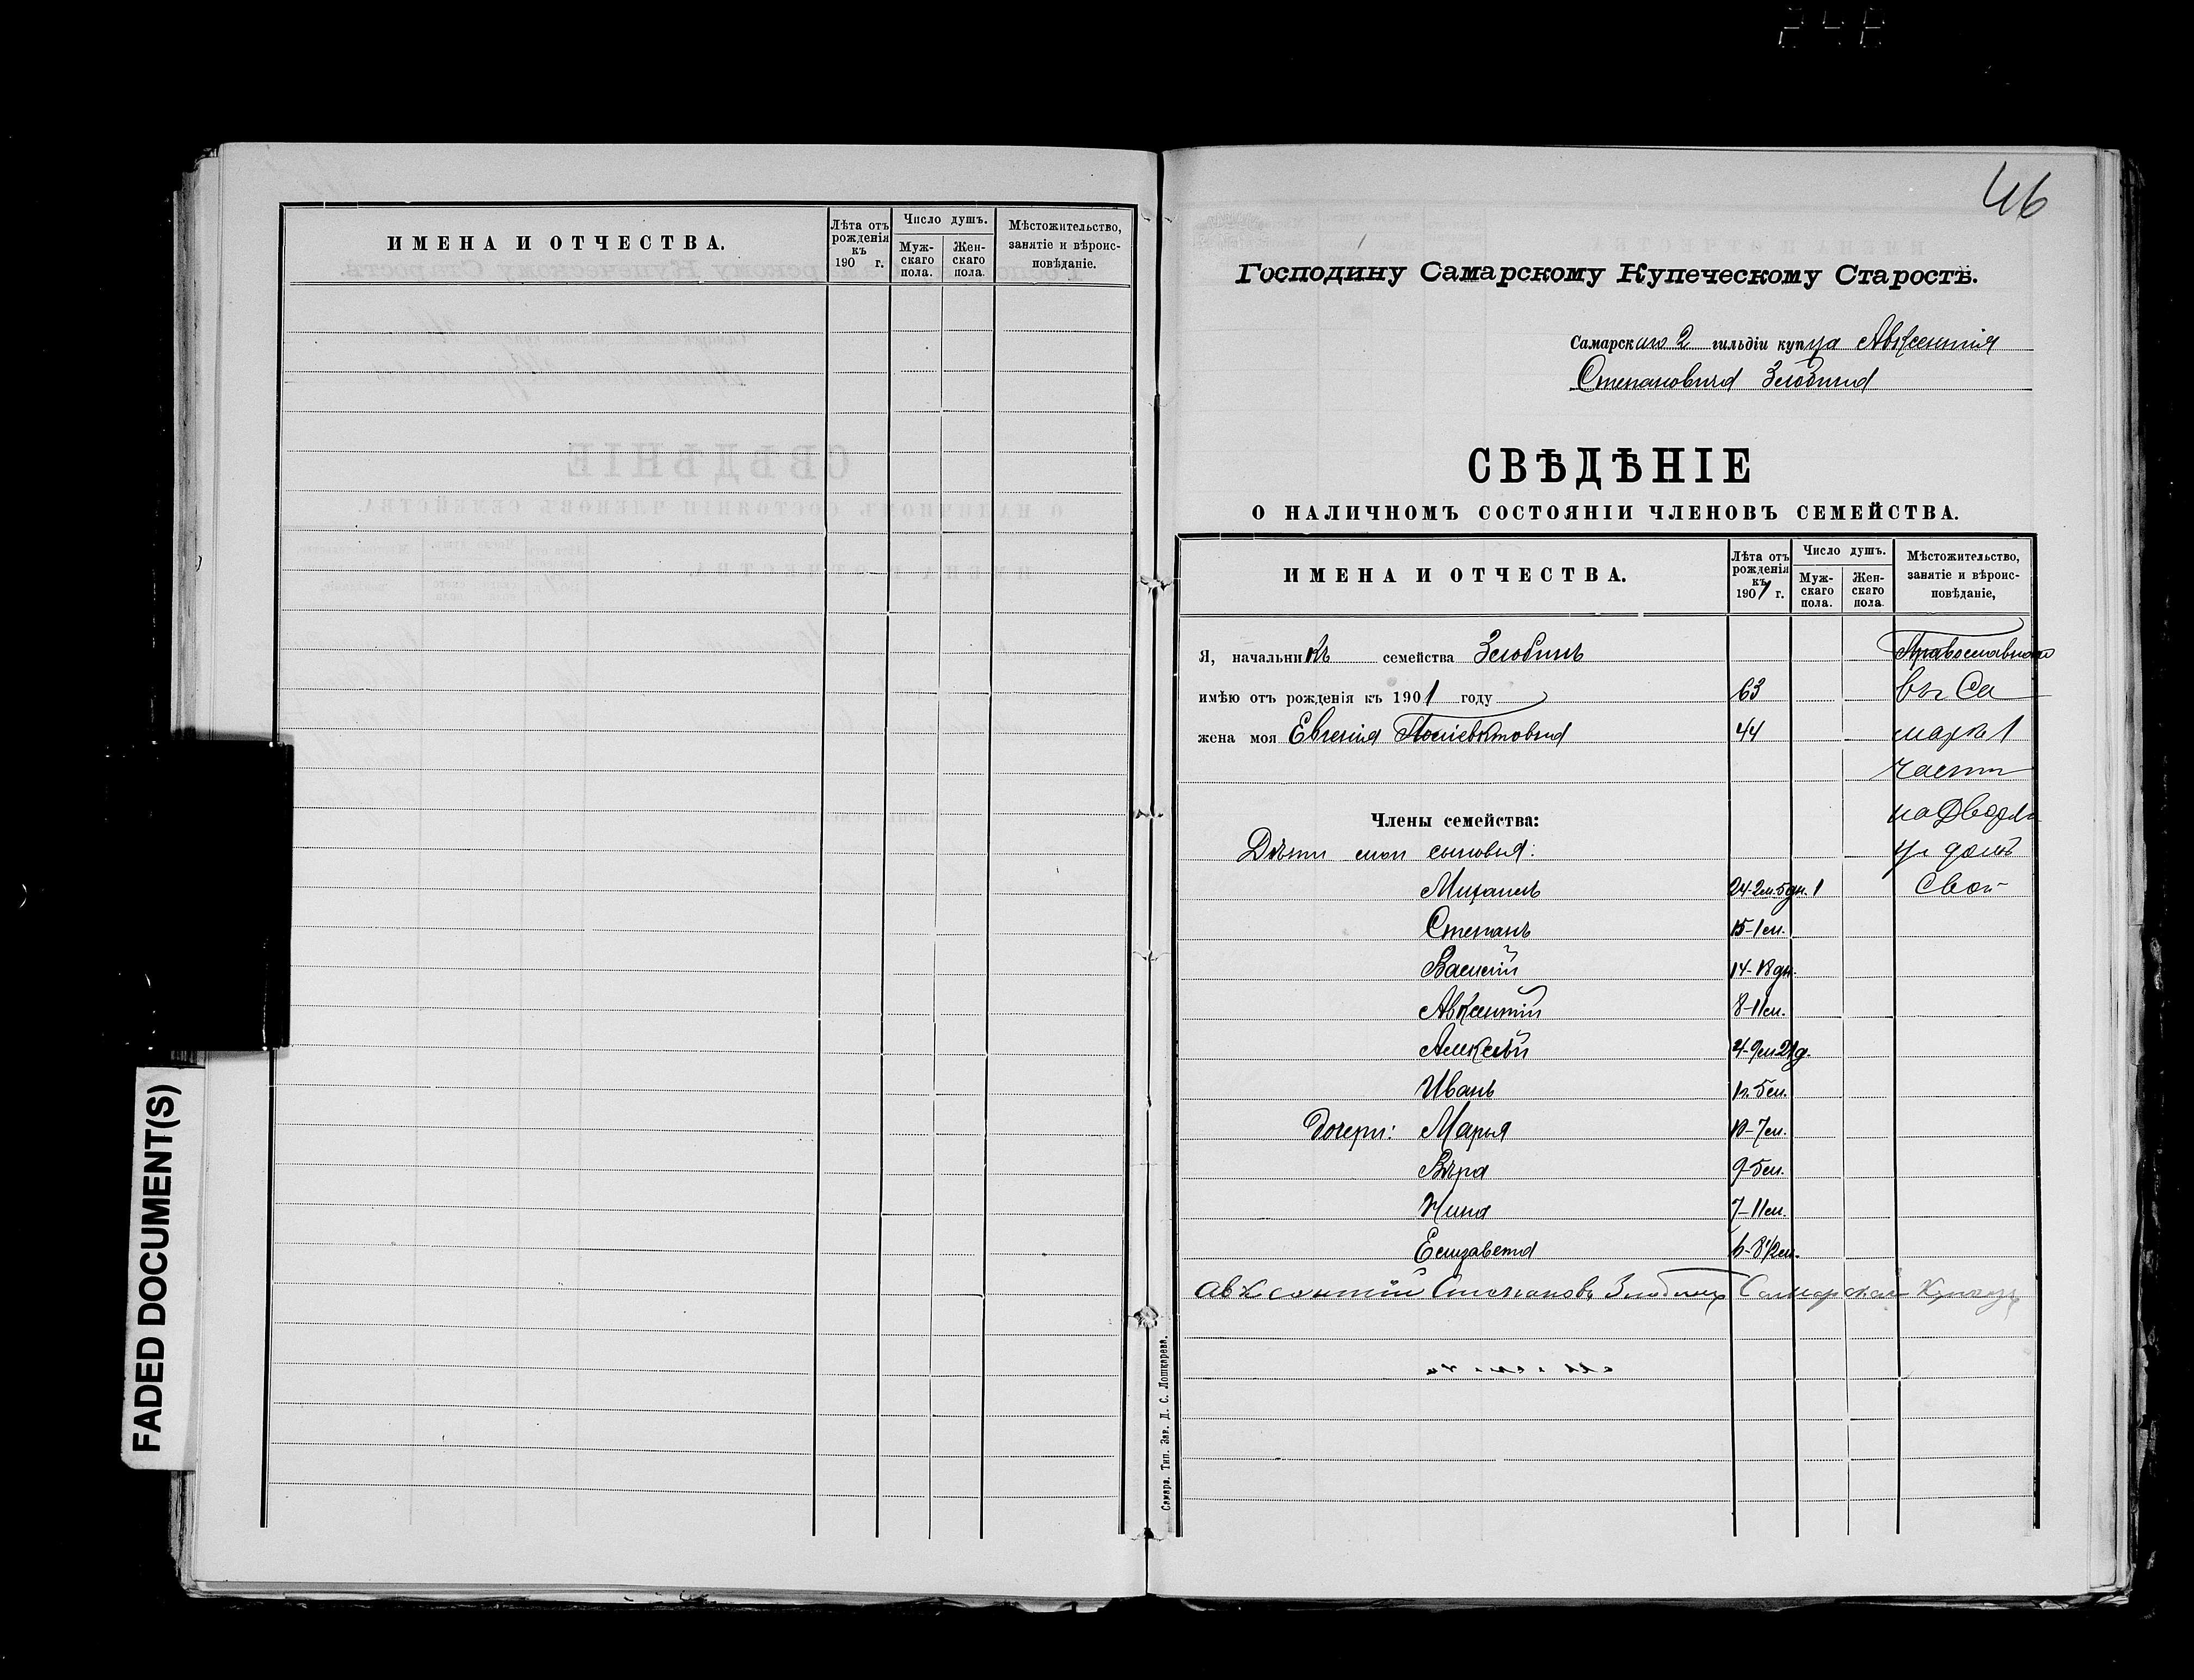 ИМЕНА И ОТЧЕСТВА.
Лѣта отъ рожденія къ 190 г.
Число душъ.
Мужскаго пола.
Женскаго пола.
Мѣстожительство, занятіе и вѣроисповѣданіе.
FADED DOCUMENT(S)
46
Господину Самарскому Купеческому Старостѣ.
Самарскаго 2 гильдіи купца Авксентія
Степановича Злобина
СВѢДѢНІЕ
О НАЛИЧНОМЪ СОСТОЯНІИ ЧЛЕНОВЪ СЕМЕЙСТВА.
ИМЕНА И ОТЧЕСТВА.
Лѣта отъ рожденія къ 1901 г.
Число душъ.
Мужскаго пола.
Женскаго пола.
Мѣстожительство, занятіе и вѣроисповѣданіе,
Я, начальникъ семейства Злобинъ Православнаго
имѣю отъ рожденія къ 1901 году 63 въ Са
жена моя Евгенія Поліевктовна 44 марѣ 1
части
Члены семейства: на Дворян
Дѣти мои сыновья: ул домъ
Михаилъ 24-2м.5дн. 1 Свой
Степанъ 15-1м.
Василій 14-18дн.
Авксентій 8-11м.
Алексѣй 4-9м21д.
Иванъ 5м.
Дочери: Марья 10-7м.
Вѣра 9-5м.
Нина 7-11м.
Елизавета 6-8½м.
Авксентій Степановъ Злобинъ Самарскай Купецъ
Самара. Тип. Зав. Д. С. Лошкарева.